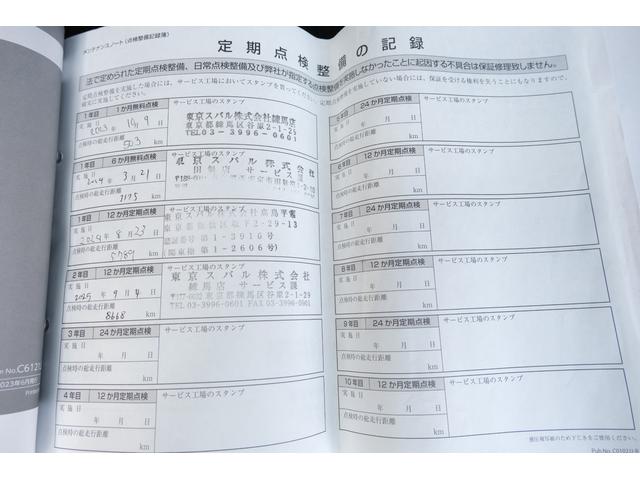 メンテナンスノート(点検整備記録簿)
定期点検整備の記録
法で定められた定期点検整備、日常点検整備及び弊社が指定する点検整備を実施しなかったことに起因する不具合は保証修理致しません。
定期点検整備を実施した場合には、サービス工場においてスタンプを貰ってください。
定期点検整備を実施していない場合には、保証を受ける権利を失うことにもなりますので、
確実に実施してください。
1年目 1か月無料点検
サービス工場のスタンプ
実施日
2023年10月9日
点検時の総走行距離
503 km
東京スバル株式会社練馬店
東京都練馬区谷原2-1-29
TEL03-3996-0601
1年目 6か月無料点検
サービス工場のスタンプ
実施日
2024年3月21日
点検時の総走行距離
1175 km
東京スバル株式会社
サービス課
1年目 12か月定期点検
サービス工場のスタンプ
実施日
2024年8月23日
点検時の総走行距離
5789 km
東京スバル株式会社高島平店
2-29-13
認証番号 第1-3916号
(関東指 第1-2606号)
2年目 12か月定期点検
サービス工場のスタンプ
実施日
2025年9月4日
点検時の総走行距離
8668 km
東京スバル株式会社
練馬店 サービス課
〒177-0032 東京都練馬区谷原2-1-29
TEL 03-3996-0601 FAX 03-3996-0760
3年目 24か月定期点検
サービス工場のスタンプ
実施日
年 月 日
点検時の総走行距離
km
4年目 12か月定期点検
サービス工場のスタンプ
実施日
年 月 日
点検時の総走行距離
km
5年目 24か月定期点検
サービス工場のスタンプ
実施日
年 月 日
点検時の総走行距離
km
6年目 12か月定期点検
サービス工場のスタンプ
実施日
年 月 日
点検時の総走行距離
km
7年目 24か月定期点検
サービス工場のスタンプ
実施日
年 月 日
点検時の総走行距離
km
8年目 12か月定期点検
サービス工場のスタンプ
実施日
年 月 日
点検時の総走行距離
km
9年目 24か月定期点検
サービス工場のスタンプ
実施日
年 月 日
点検時の総走行距離
km
10年目 12か月定期点検
サービス工場のスタンプ
実施日
年 月 日
点検時の総走行距離
km
感圧複写紙のため下じきをご使用ください。